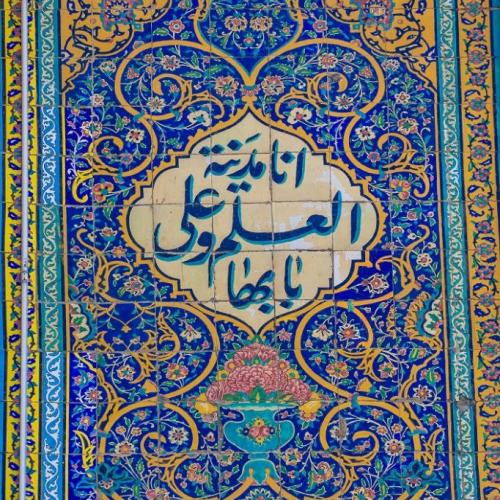 انا مدَینة
العلم وعلی
بابها